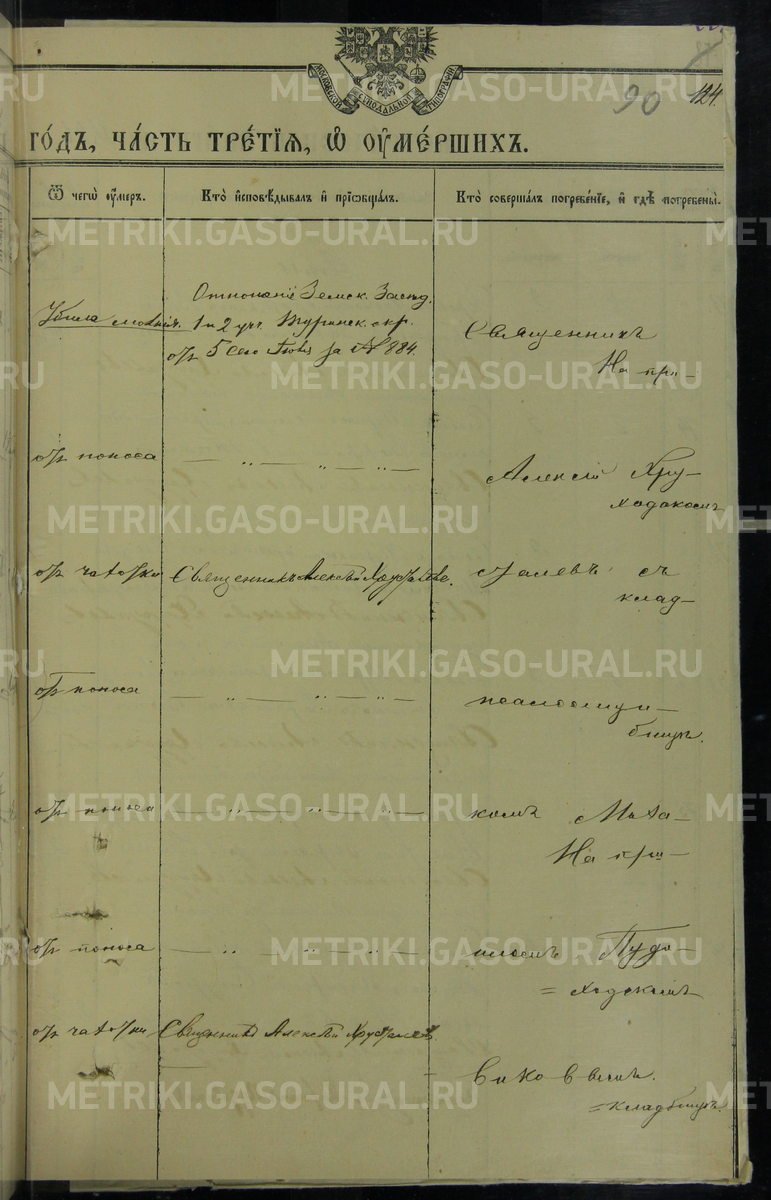 МОСКОВСКОЙ СѴНОДАЛЬНОЙ ТИПОГРАФІИ
90 124.
ГО́ДЪ, ЧА́СТЬ ТРЕ́ТІѦ, Ѽ ОУМЕ́РШИХЪ.
Ѿ чегѡ̀ оу́меръ.
Кто̀ и҆сповѣ́дывалъ и҆ прїѡбща́лъ.
Кто̀ соверша́лъ погребе́нїе, и҆ гдѣ̀ погребены̀.
Убила молнія.
Отношеніе Земск. Засѣд.
1 и 2 уч. Туринск. окр.
отъ 5 сего Іюля за № 884.
Священникъ
На при-
отъ поноса
— „ — „ — „ —
Алексій Хру-
ходскомъ
отъ чахотки
Священникъ Алексѣй Хрусталевъ.
сталевъ съ
клад-
отъ поноса
— „ — „ — „ —
псаломщи-
бищѣ.
отъ поноса
— „ — „ — „ —
комъ Миха-
На при-
отъ поноса
— „ — „ — „ —
иломъ Пудо-
= ходскомъ
отъ чахотки
Священникъ Алексѣй Хрусталевъ.
виковымъ.
= кладбищѣ.
METRIKI.GASO-URAL.RU